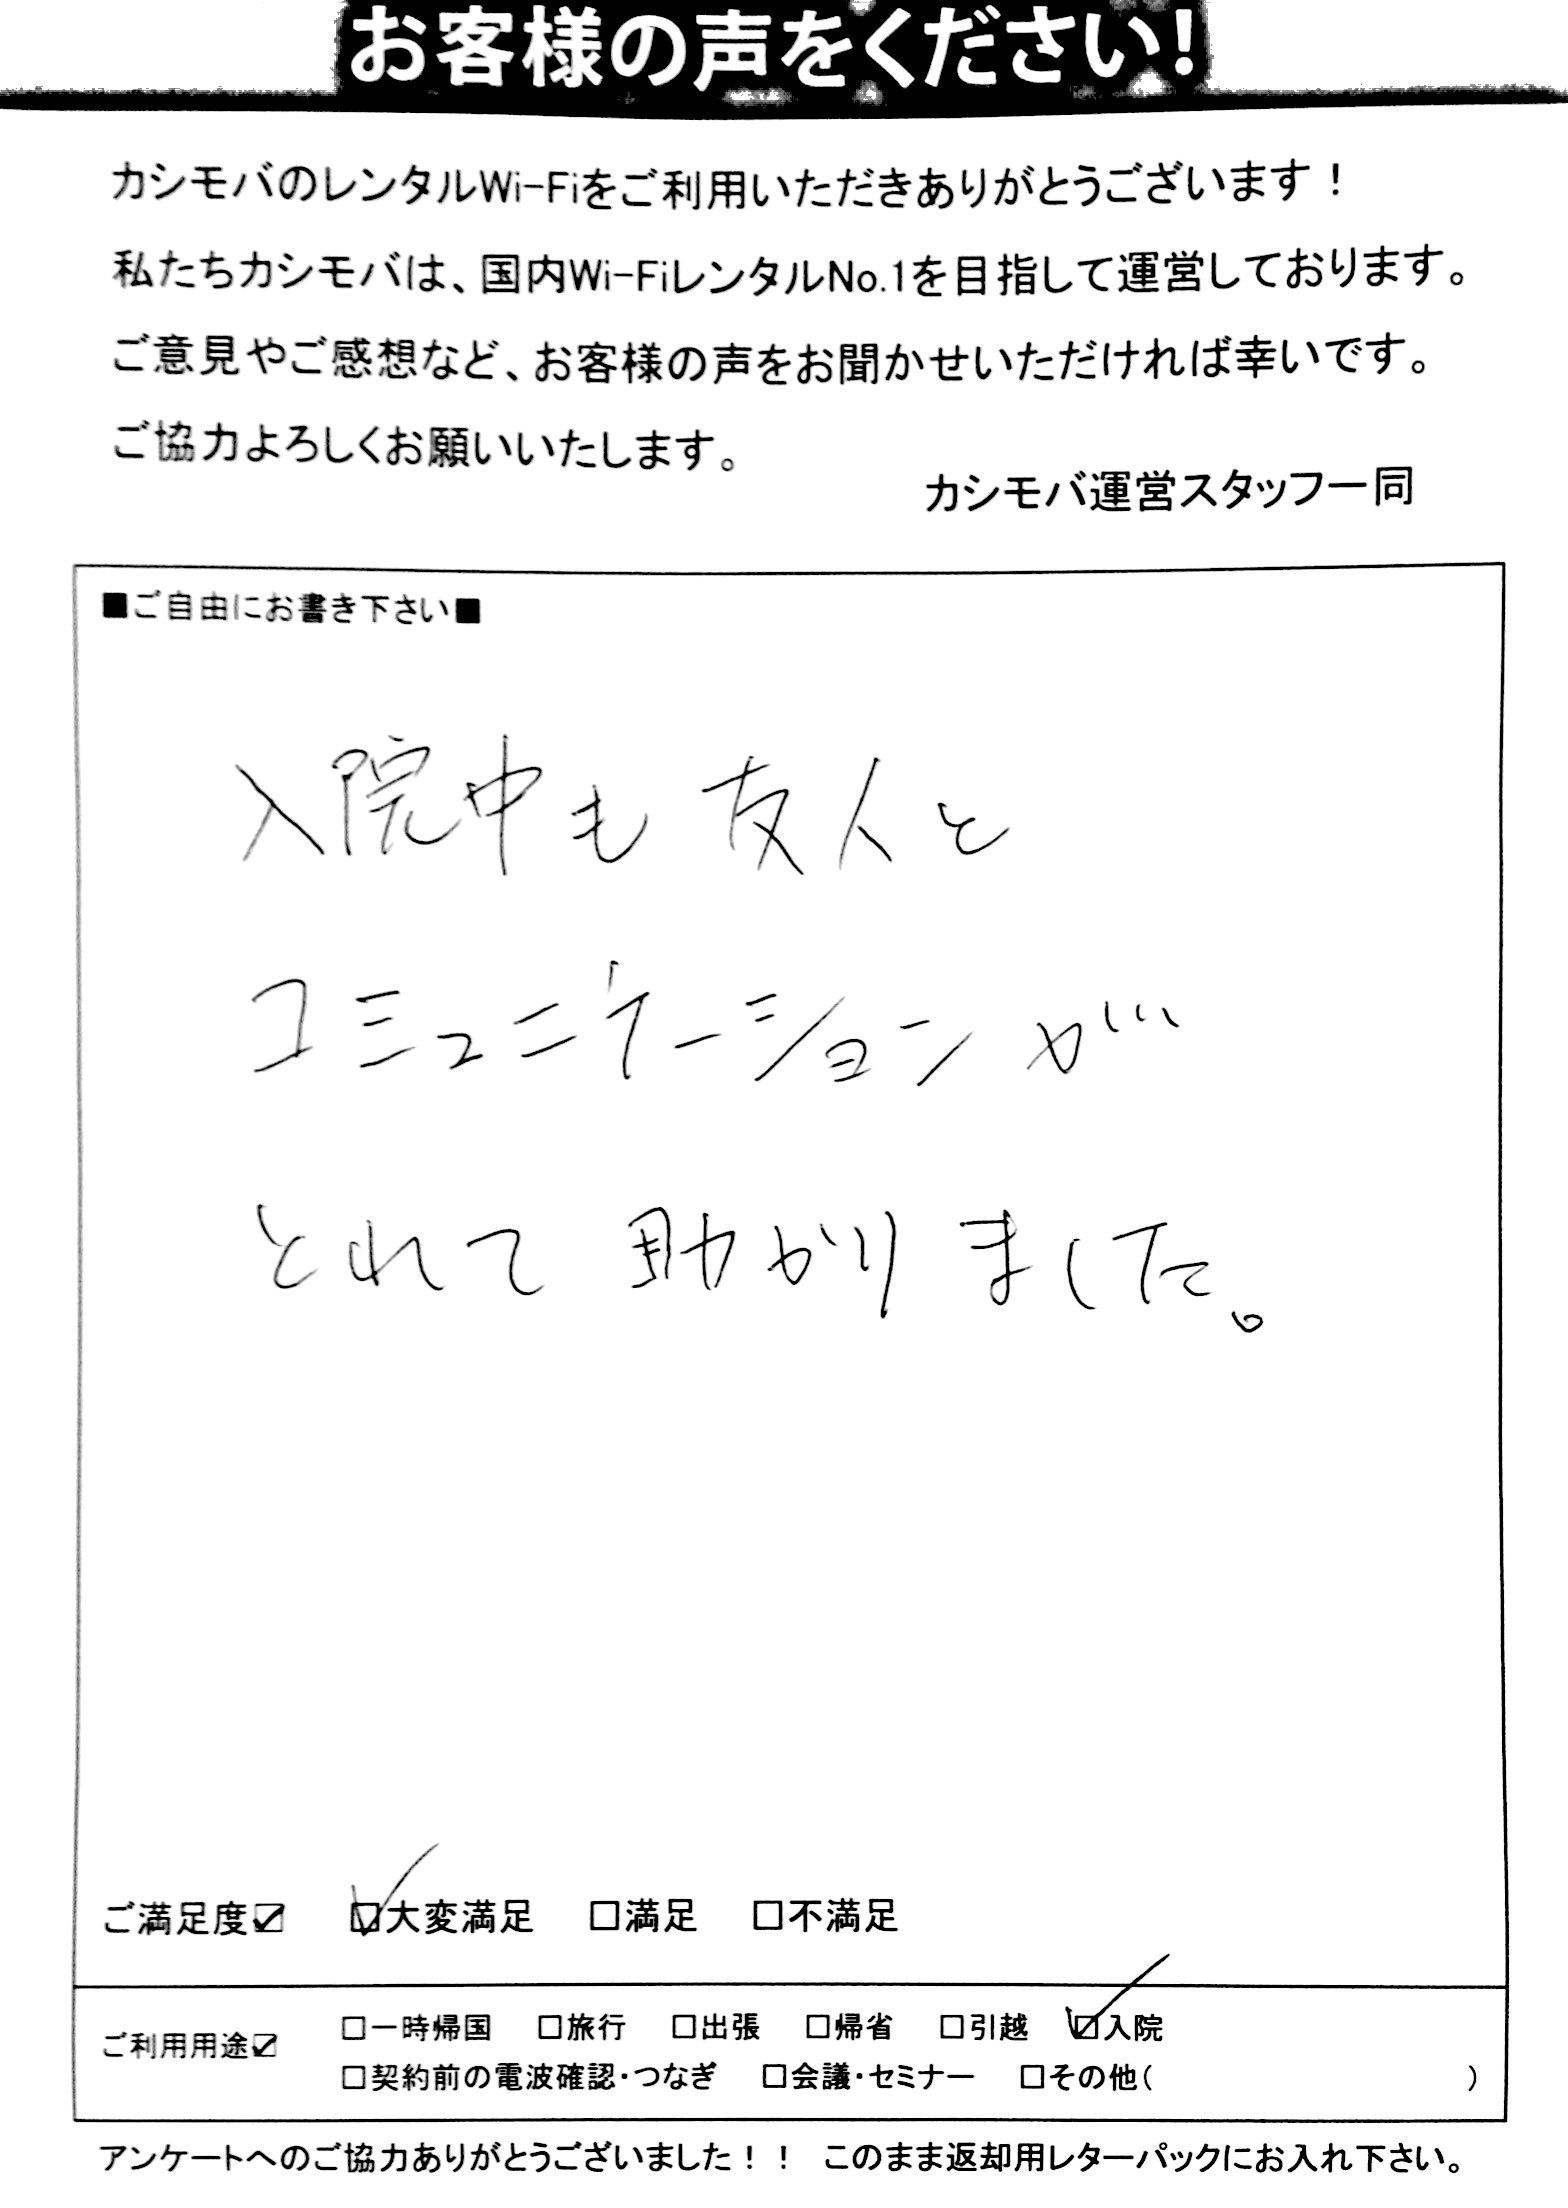 お客様の声をください!
カシモバのレンタルWi-Fiをご利用いただきありがとうございます！
私たちカシモバは、国内Wi-FiレンタルNo.1を目指して運営しております。
ご意見やご感想など、お客様の声をお聞かせいただければ幸いです。
ご協力よろしくお願いいたします。
カシモバ運営スタッフ一同
■ご自由にお書き下さい■
入院中も友人と
コミュニケーションが
とれて助かりました。
ご満足度☑ ☑大変満足 □満足 □不満足
ご利用用途☑ □一時帰国 □旅行 □出張 □帰省 □引越 ☑入院
□契約前の電波確認・つなぎ □会議・セミナー □その他( )
アンケートへのご協力ありがとうございました！！ このまま返却用レターパックにお入れ下さい。